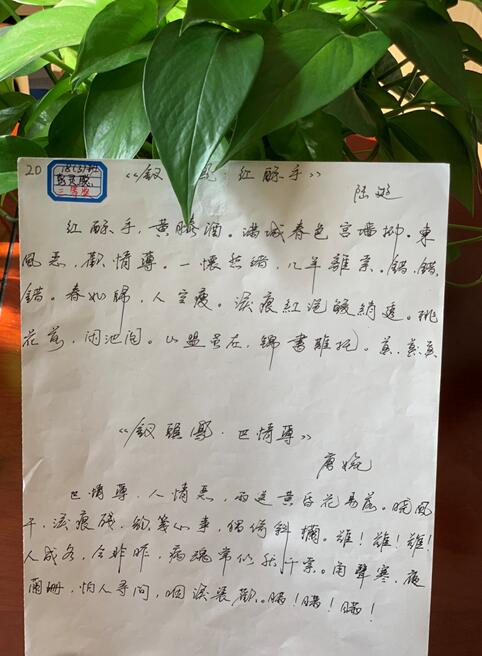 20
二等奖
《钗 凤·红酥手》
陆游
红酥手，黄縢酒。满城春色宫墙柳。東
风恶，歡情薄。一懷愁绪，几年離索。錯、錯、
錯。春如旧，人空瘦。淚痕紅浥鲛绡透。桃
花落，闲池阁。山盟虽在，锦書難托。莫、莫、莫
《釵頭鳳·世情薄》
唐婉
世情薄，人情恶，雨送黄昏花易落。晓风
干，淚痕残，欲笺心事，倚斜欄。難！難！難！
人成各，今非昨，病魂常似秋千索。角聲寒，夜
闌珊，怕人寻问，咽淚装歡。瞒！瞒！瞒！